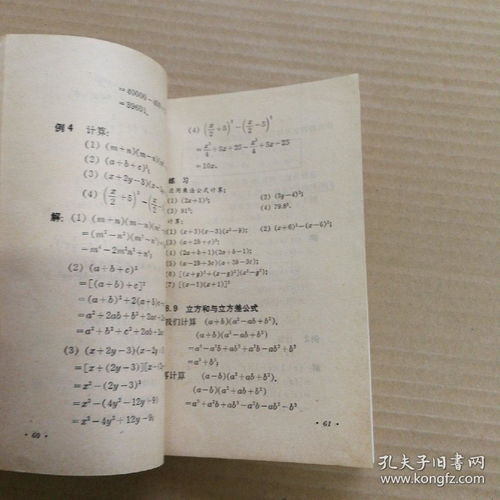 =40000-400
=39601.
例4 计算:
(1) (m+n)(m-n)(m
(2) (a+b+c)²;
(3) (x+2y-3)(x-
(4) (x/2+5)²-(x/2-
解: (1) (m+n)(m-n)(m
=(m²-n²)(m²-n²)
=m⁴-2m²n²+n⁴;
(2) (a+b+c)²
=[(a+b)+c]²
=(a+b)²+2(a+b)
=a²+2ab+b²+2a
=a²+b²+c²+2ab+2
(3) (x+2y-3)(x-2y
=[x+(2y-3)][x-
=x²-(2y-3)²
=x²-(4y²-12y+9)
=x²-4y²+12y-9
· 60 ·
(4) (x/2+5)²-(x/2-5)²
=x²/4+5x+25-x²/4+5x-25
=10x.
练 习
应用乘法公式计算:
(1) (2x+1)²;
(2) (3y-4)²;
(3) 91²;
(4) 79.8².
计算:
(1) (x+3)(x-3)(x²-9);
(2) (x+6)²-(x-6)²;
(3) (a+2b+c)²;
(4) (2a+b+1)(2a+b-1);
(5) (x-2b+3c)(a+2b-3c);
(6) [(x+y)²+(x-y)²](x²-y²);
(7) [(x-1)(x+1)]²
8.9 立方和与立方差公式
我们计算 (a+b)(a²-ab+b²).
(a+b)(a²-ab+b²)
=a³-a²b+ab²+a²b-ab²+b³
=a³+b³;
再计算 (a-b)(a²+ab+b²).
(a-b)(a²+ab+b²)
=a³+a²b+ab²-a²b-ab²-b³
· 61 ·
孔夫子旧书网
www.kongfz.com